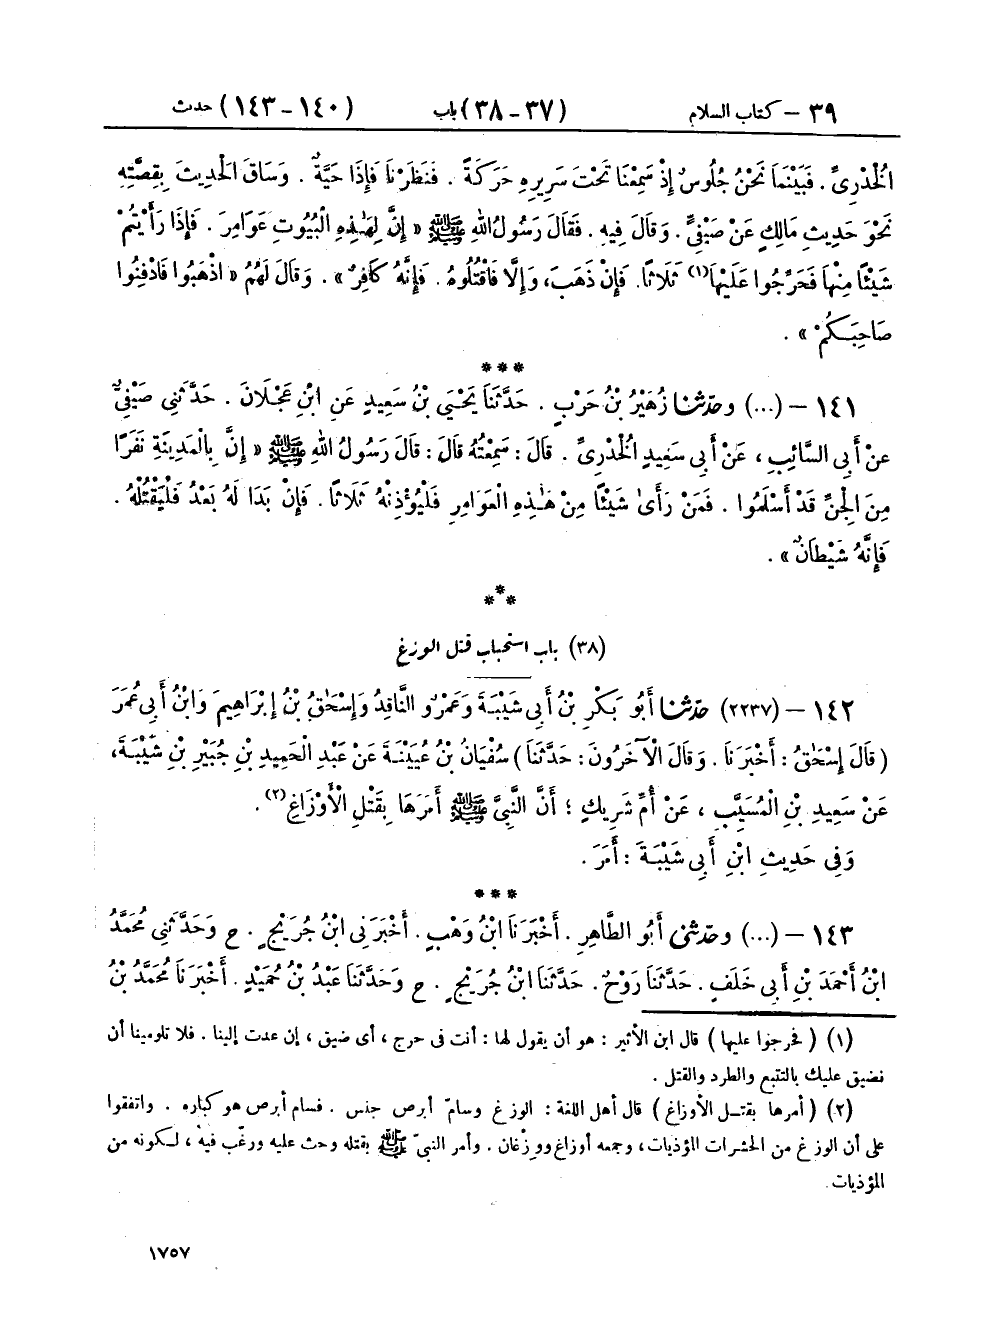 ٣٩ – كتاب السلام (٣٧ - ٣٨) باب (١٤٠ - ١٤٣) حدث
الْخُدْرِىِّ . فَبَيْنَمَا نَحْنُ جُلُوسٌ إِذْ سَمِعْنَا تَحْتَ سَرِيرِهِ حَرَكَةً . فَنَظَرْنَا فَإِذَا حَيَّةٌ . وَسَاقَ الْحَدِيثَ بِقِصَّتِهِ
نَحْوَ حَدِيثِ مَالِكٍ عَنْ صَيْفِىٍّ . وَقَالَ فِيهِ . فَقَالَ رَسُولُ اللهِ ﷺ « إِنَّ لِهَٰذِهِ الْبُيُوتِ عَوَامِرَ . فَإِذَا رَأَيْتُمْ
شَيْئًا مِنْهَا فَحَرِّجُوا عَلَيْهَا(١) ثَلَاثًا. فَإِنْ ذَهَبَ، وَإِلَّا فَاقْتُلُوهُ . فَإِنَّهُ كَافِرٌ » . وَقَالَ لَهُمُ « اذْهَبُوا فَادْفِنُوا
صَاحِبَكُمْ » .
***
١٤١ – (...) وحَدَّثَنَا زُهَيْرُ بْنُ حَرْبٍ . حَدَّثَنَا يَحْيَىٰ بْنُ سَعِيدٍ عَنِ ابْنِ عَجْلَانَ . حَدَّثَنِى صَيْفِىٌّ
عَنْ أَبِى السَّائِبِ ، عَنْ أَبِى سَعِيدٍ الْخُدْرِىِّ . قَالَ : سَمِعْتُهُ قَالَ : قَالَ رَسُولُ اللهِ ﷺ « إِنَّ بِالْمَدِينَةِ نَفَرًا
مِنَ الْجِنِّ قَدْ أَسْلَمُوا . فَمَنْ رَأَىٰ شَيْئًا مِنْ هَٰذِهِ الْعَوَامِرِ فَلْيُؤْذِنْهُ ثَلَاثًا . فَإِنْ بَدَا لَهُ بَعْدُ فَلْيَقْتُلْهُ .
فَإِنَّهُ شَيْطَانٌ » .
***
(٣٨) باب استحباب قتل الوزغ
١٤٢ – (٢٢٣٧) حَدَّثَنَا أَبُو بَكْرِ بْنُ أَبِى شَيْبَةَ وَعَمْرٌو النَّاقِدُ وَإِسْحَٰقُ بْنُ إِبْرَاهِيمَ وَابْنُ أَبِى عُمَرَ
( قَالَ إِسْحَٰقُ : أَخْبَرَنَا . وَقَالَ الْآخَرُونَ : حَدَّثَنَا ) سُفْيَانُ بْنُ عُيَيْنَةَ عَنْ عَبْدِ الْحَمِيدِ بْنِ جُبَيْرِ بْنِ شَيْبَةَ،
عَنْ سَعِيدِ بْنِ الْمُسَيَّبِ ، عَنْ أُمِّ شَرِيكٍ ؛ أَنَّ النَّبِىَّ ﷺ أَمَرَهَا بِقَتْلِ الْأَوْزَاغِ(٢) .
وَفِى حَدِيثِ ابْنِ أَبِى شَيْبَةَ : أَمَرَ .
***
١٤٣ – (...) وحَدَّثَنِى أَبُو الطَّاهِرِ . أَخْبَرَنَا ابْنُ وَهْبٍ . أَخْبَرَنِى ابْنُ جُرَيْجٍ . ح وَحَدَّثَنِى مُحَمَّدُ
ابْنُ أَحْمَدَ بْنِ أَبِى خَلَفٍ . حَدَّثَنَا رَوْحٌ . حَدَّثَنَا ابْنُ جُرَيْجٍ . ح وَحَدَّثَنَا عَبْدُ بْنُ حُمَيْدٍ . أَخْبَرَنَا مُحَمَّدُ بْنُ
(١) ( فحرجوا عليها ) قال ابن الأثير : هو أن يقول لها : أنت فى حرج ، أى ضيق ، إن عدت إلينا . فلا تلومينا أن
نضيق عليك بالتتبع والطرد والقتل .
(٢) ( أمرها بقتل الأوزاغ ) قال أهل اللغة : الوزغ وسامّ أبرص جنس . فسام أبرص هو كباره . واتفقوا
على أن الوزغ من الحشرات المؤذيات، وجمعه أوزاغ ووزغان . وأمر النبىّ ﷺ بقتله وحث عليه ورغّب فيه ، لكونه من
المؤذيات .
١٧٥٧